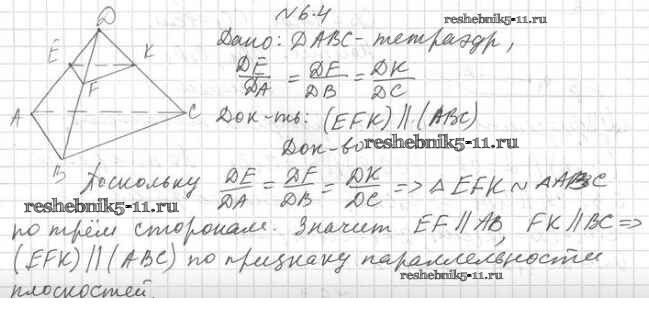 №6.4
reshebnik5-11.ru
Дано: DABC - тетраэдр,
DE/DA = DF/DB = DK/DC
Док-ть: (EFK) || (ABC)
reshebnik5-11.ru
Док-во
Поскольку DE/DA = DF/DB = DK/DC => △EFK ~ △ABC
reshebnik5-11.ru
по трём сторонам. Значит EF || AB, FK || BC =>
(EFK) || (ABC) по признаку параллельности
reshebnik5-11.ru
плоскостей.
D
E
K
F
A
C
B